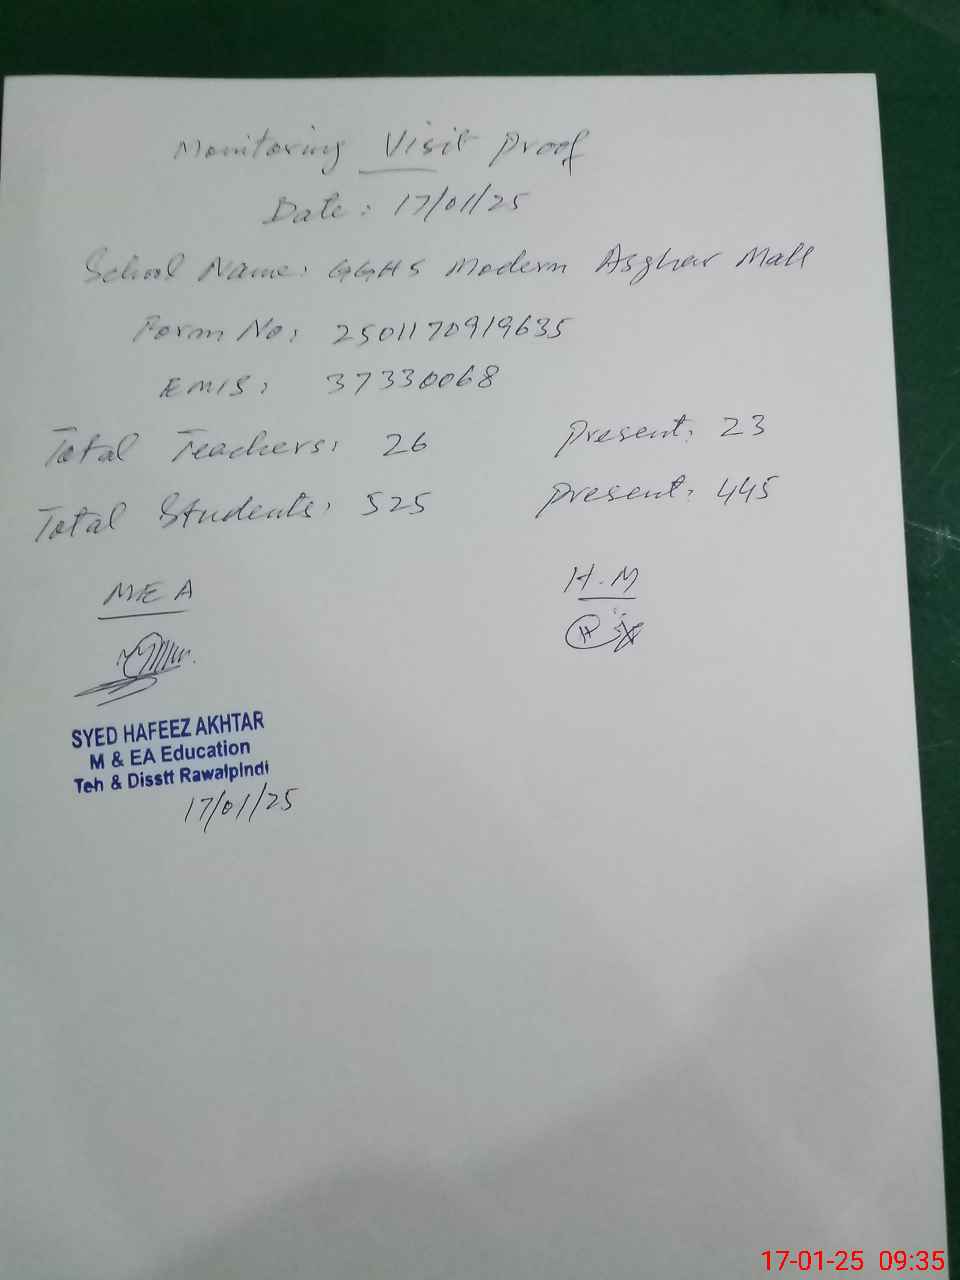 Monitoring Visit Proof
Date: 17/01/25
School Name: GGHS Modern Asghar Mall
Form No: 2501170919635
EMIS: 37330068
Total Teachers: 26 Present: 23
Total Students: 525 Present: 445
MEA H.M
SYED HAFEEZ AKHTAR
M & EA Education
Teh & Disstt Rawalpindi
17/01/25
17-01-25 09:35